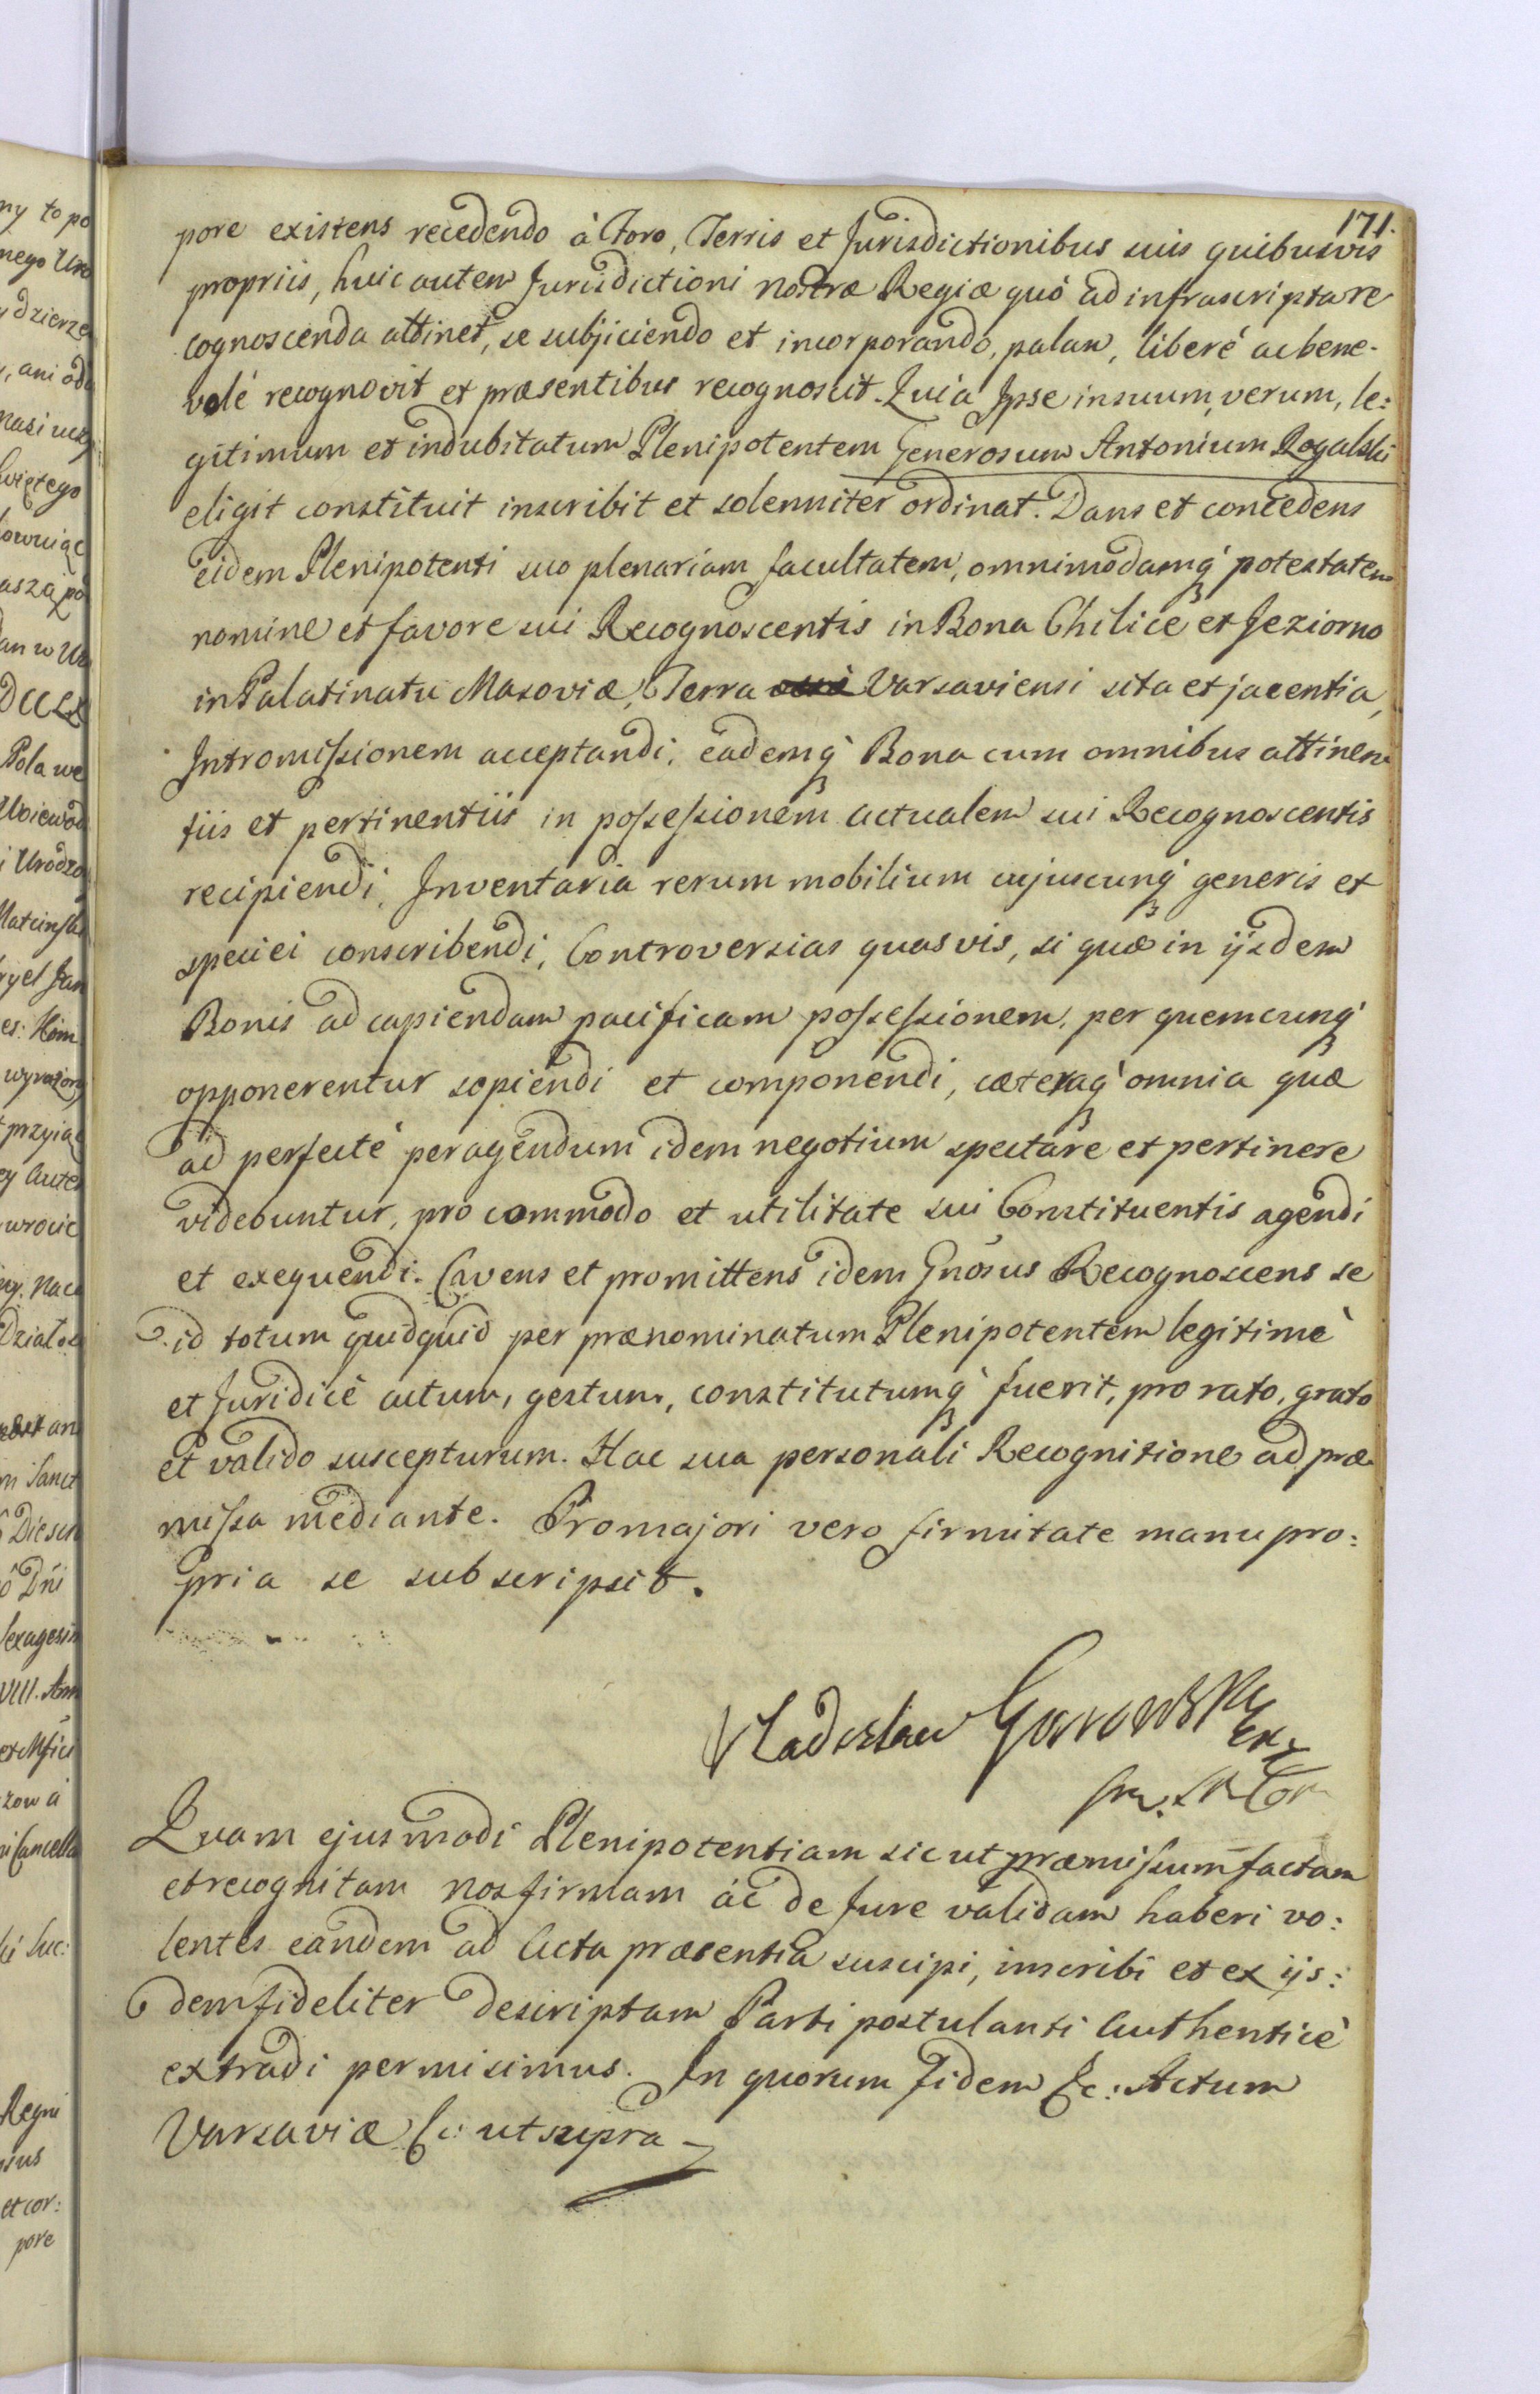 171.
pore existens recedendo à Foro, Terris et Jurisdictionibus suis quibusvis
propriis, huic autem Jurisdictioni nostræ Regiæ quò ad infrascripta re
cognoscenda attinet, se subjiciendo et incorporando, palam, liberè ac bene-
volè recognovit et præsentibus recognoscit. Quia Ipse in suum, verum, le:
gitimum et indubitatum Plenipotentem Generosum Antonium Rogalski
eligit constituit inscribit et solenniter ordinat. Dans et concedens
eidem Plenipotenti suo plenariam facultatem, omnimodamq́ potestatem
nomine et favore sui Recognoscentis in Bona Chilice et Jeziorno
in Palatinatu Masoviæ, Terra Varsaviensi sita et jacentia,
Intromissionem acceptandi, eademq́ Bona cum omnibus attinen
tiis et pertinentiis in possessionem actualem sui Recognoscentis
recipiendi, Inventaria rerum mobilium cujuscunq́ generis et
speciei conscribendi, Controversias quasvis, si quæ in ijsdem
Bonis ad capiendam pacificam possessionem, per quemcunq́
opponerentur sopiendi et componendi, cæteraq́ omnia quæ
ad perfectè peragendum idem negotium spectare et pertinere
videbuntur, pro commodo et utilitate sui Constituentis agendi
et exequendi. Cavens et promittens idem Gnosus Recognoscens se
id totum quidquid per prænominatum Plenipotentem legitimè
et Juridicè actum, gestum, constitutumq́ fuerit, pro rato, grato
et valido suscepturum. Hac sua personali Recognitione ad præ
missa mediante. Pro majori vero firmitate manu pro:
pria se subscripsit.
Vladislaw Gurowski
Quam ejusmodi Plenipotentiam sic ut præmissum factam
et recognitam nos firmam ac de Jure validam haberi vo:
lentes eandem ad Acta præsentia suscipi, inscribi et ex ijs:
dem fideliter descriptam Parti postulanti Authenticè
extradi permisimus. In quorum fidem &c: Actum
Varsaviæ &c: ut supra
ny to po
nego Uro
dzierze
, ani od
swiętego
aszą po
an w
DCCLX
Pola we
Woiewod
i Urodzo
es: Kom
wyrażon
przyiąc
ey Aute
wrocic
ny. Na
m Sanct
Dñi
sexagesim
VIII. Ann
zow a
Cancella
Regni
sus
et cor:
pore